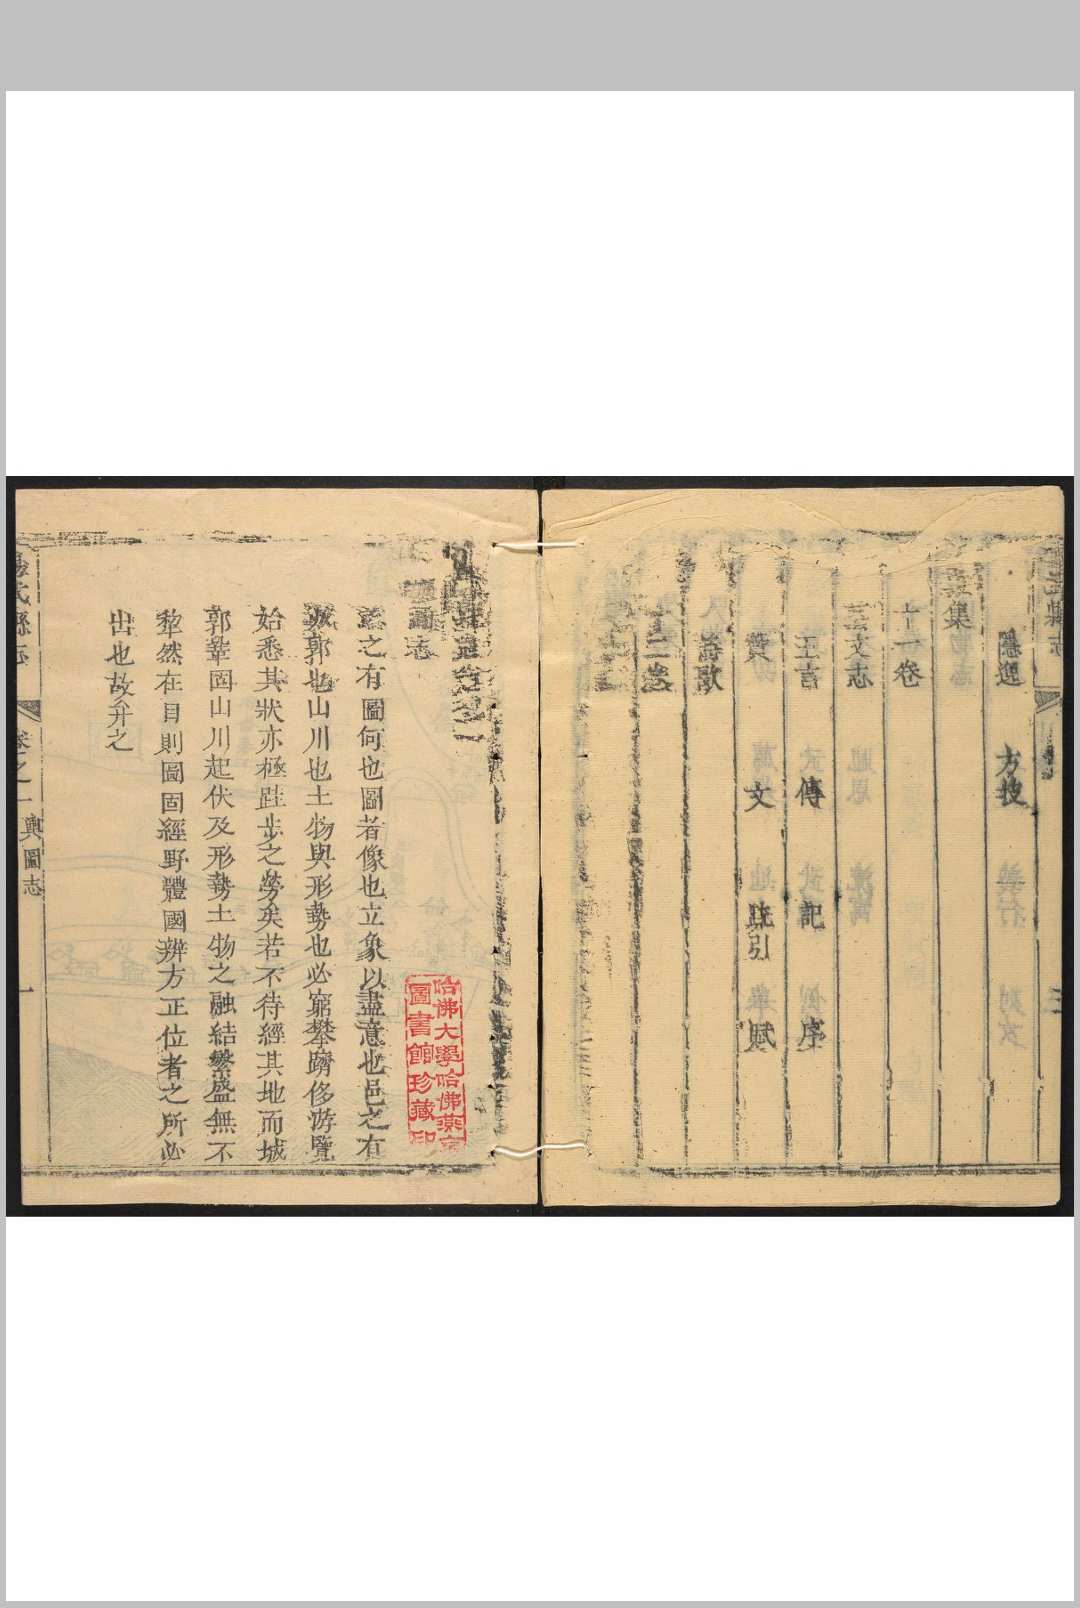 隱逸 方技
叢集
十一卷
藝文志
王言 傳 記 序
贊 文 疏引 賦
詩歌
十二卷
圖志
志之有圖何也圖者像也立象以盡意也邑之有
城郭也山川也土物與形勢也必窮攀躋侈游覽
始悉其狀亦極跬步之勞矣若不待經其地而城
郭鞏固山川起伏及形勢土物之融結繁盛無不
犂然在目則圖固經野體國辨方正位者之所必
出也故弁之
氏縣志 卷之一輿圖志 一
哈佛大學哈佛燕京
圖書館珍藏印